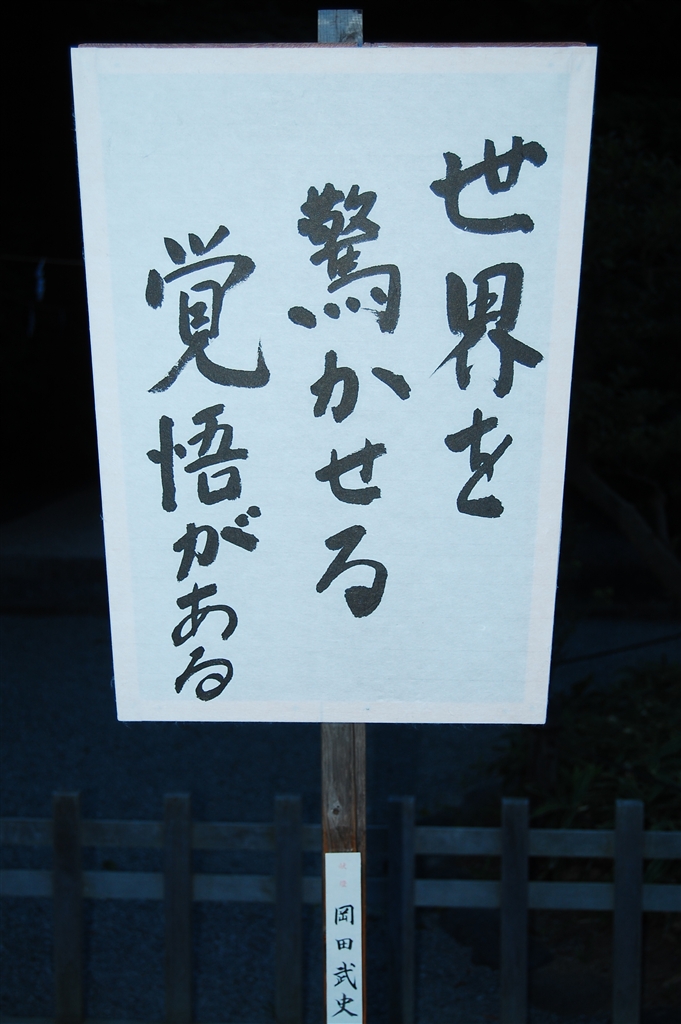 世界を
驚かせる
覚悟がある
岡田武史